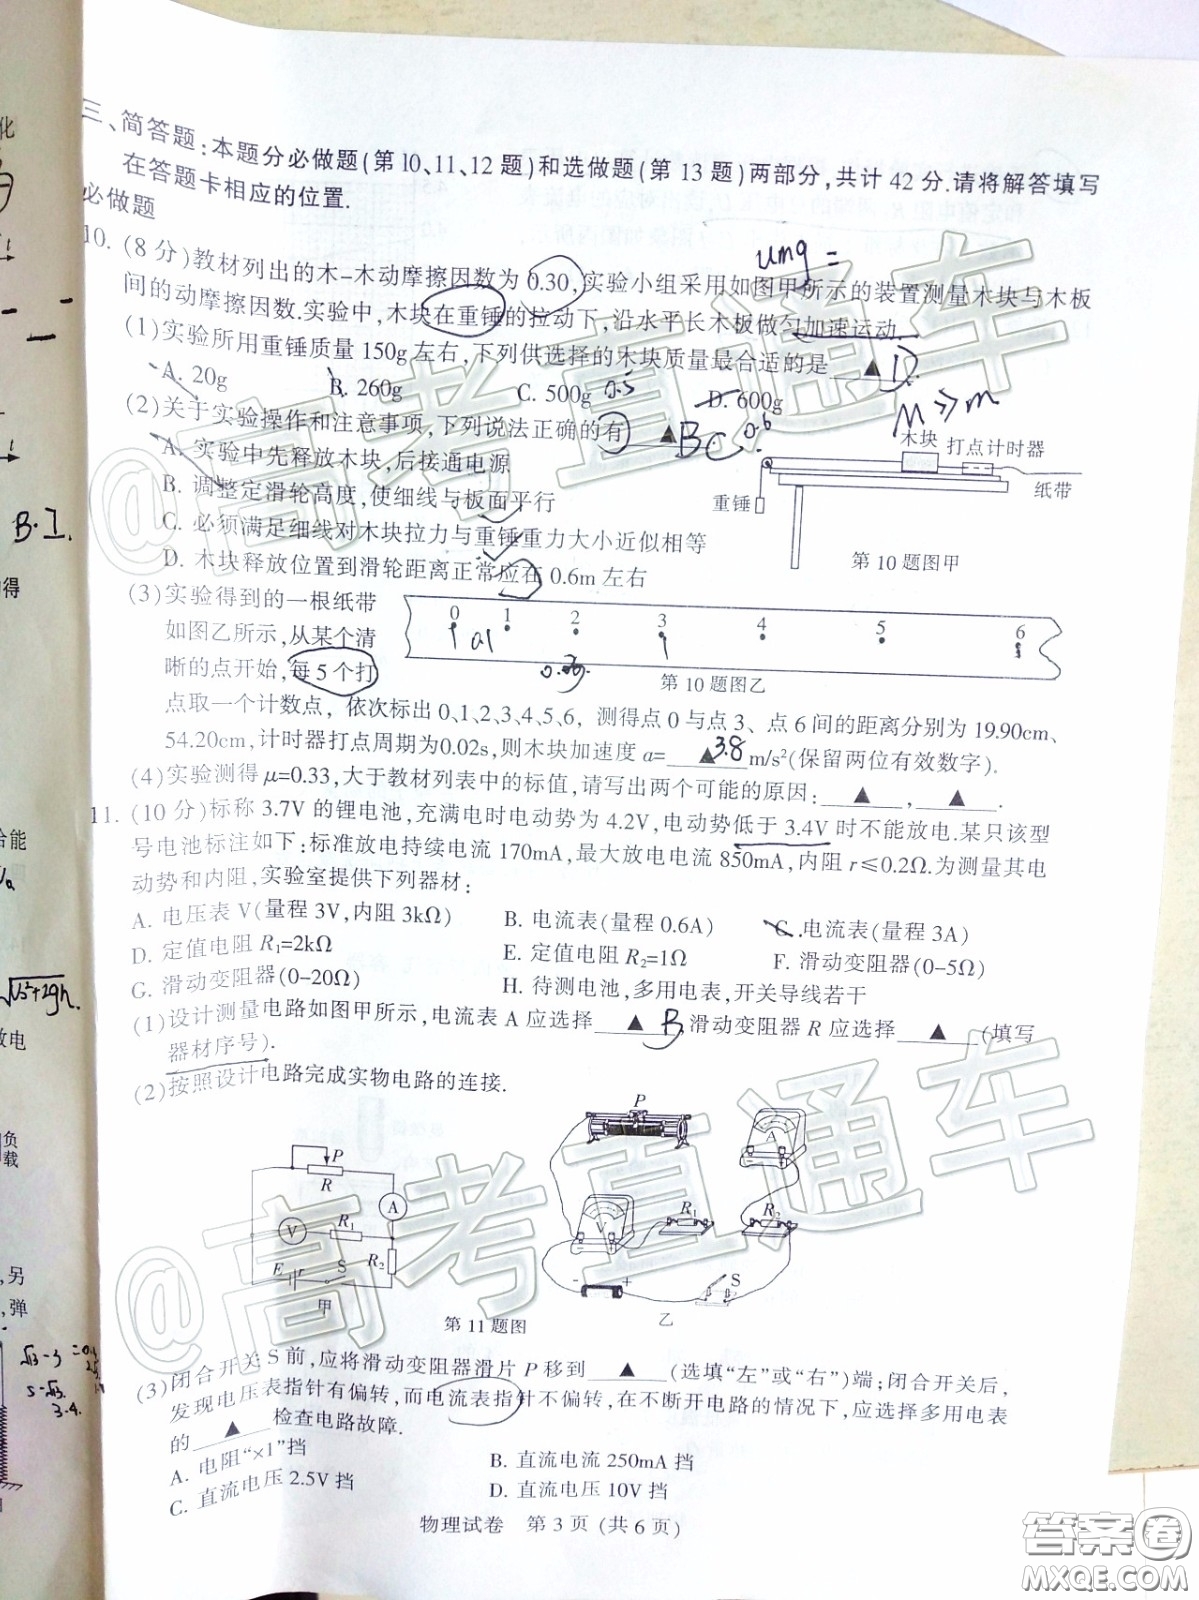 三、简答题:本题分必做题(第10、11、12题)和选做题(第13题)两部分,共计42分.请将解答填写
在答题卡相应的位置.
必做题
umg =
10. (8分)教材列出的木-木动摩擦因数为0.30,实验小组采用如图甲所示的装置测量木块与木板
间的动摩擦因数.实验中,木块在重锤的拉动下,沿水平长木板做匀加速运动.
(1)实验所用重锤质量150g左右,下列供选择的木块质量最合适的是 ▲ D.
A. 20g B. 260g C. 500g 0.5 D. 600g 0.6
M≫m
(2)关于实验操作和注意事项,下列说法正确的有 ▲ BC.
A. 实验中先释放木块,后接通电源
B. 调整定滑轮高度,使细线与板面平行
C. 必须满足细线对木块拉力与重锤重力大小近似相等
D. 木块释放位置到滑轮距离正常应在0.6m左右
木块 打点计时器
重锤 纸带
第10题图甲
(3)实验得到的一根纸带
如图乙所示,从某个清
晰的点开始,每5个打
点取一个计数点,依次标出0、1、2、3、4、5、6,测得点0与点3、点6间的距离分别为19.90cm、
54.20cm,计时器打点周期为0.02s,则木块加速度a= ▲ 3.8 m/s²(保留两位有效数字).
0 1 2 3 4 5 6
第10题图乙
(4)实验测得μ=0.33,大于教材列表中的标值,请写出两个可能的原因: ▲ , ▲ .
11. (10分)标称3.7V的锂电池,充满电时电动势为4.2V,电动势低于3.4V时不能放电.某只该型
号电池标注如下:标准放电持续电流170mA,最大放电电流850mA,内阻r≤0.2Ω.为测量其电
动势和内阻,实验室提供下列器材:
A. 电压表V(量程3V,内阻3kΩ) B. 电流表(量程0.6A) C. 电流表(量程3A)
D. 定值电阻R₁=2kΩ E. 定值电阻R₂=1Ω F. 滑动变阻器(0-5Ω)
G. 滑动变阻器(0-20Ω) H. 待测电池,多用电表,开关导线若干
(1)设计测量电路如图甲所示,电流表A应选择 ▲ B,滑动变阻器R应选择 ▲ (填写
器材序号).
(2)按照设计电路完成实物电路的连接.
P
R
A
V
R₁
R₂
E r S
甲
P
A
V
R₁
R₂
- + S
乙
第11题图
(3)闭合开关S前,应将滑动变阻器滑片P移到 ▲ (选填“左”或“右”)端;闭合开关后,
发现电压表指针有偏转,而电流表指针不偏转,在不断开电路的情况下,应选择多用电表
的 ▲ 检查电路故障.
A. 电阻“×1”挡 B. 直流电流250mA挡
C. 直流电压2.5V挡 D. 直流电压10V挡
物理试卷 第3页(共6页)
@高考直通车
@高考直通车
答案圈
MXQE.COM
化
B·I.
得
合能
√v₀²+2gh.
放电
负
载
,另
,弹